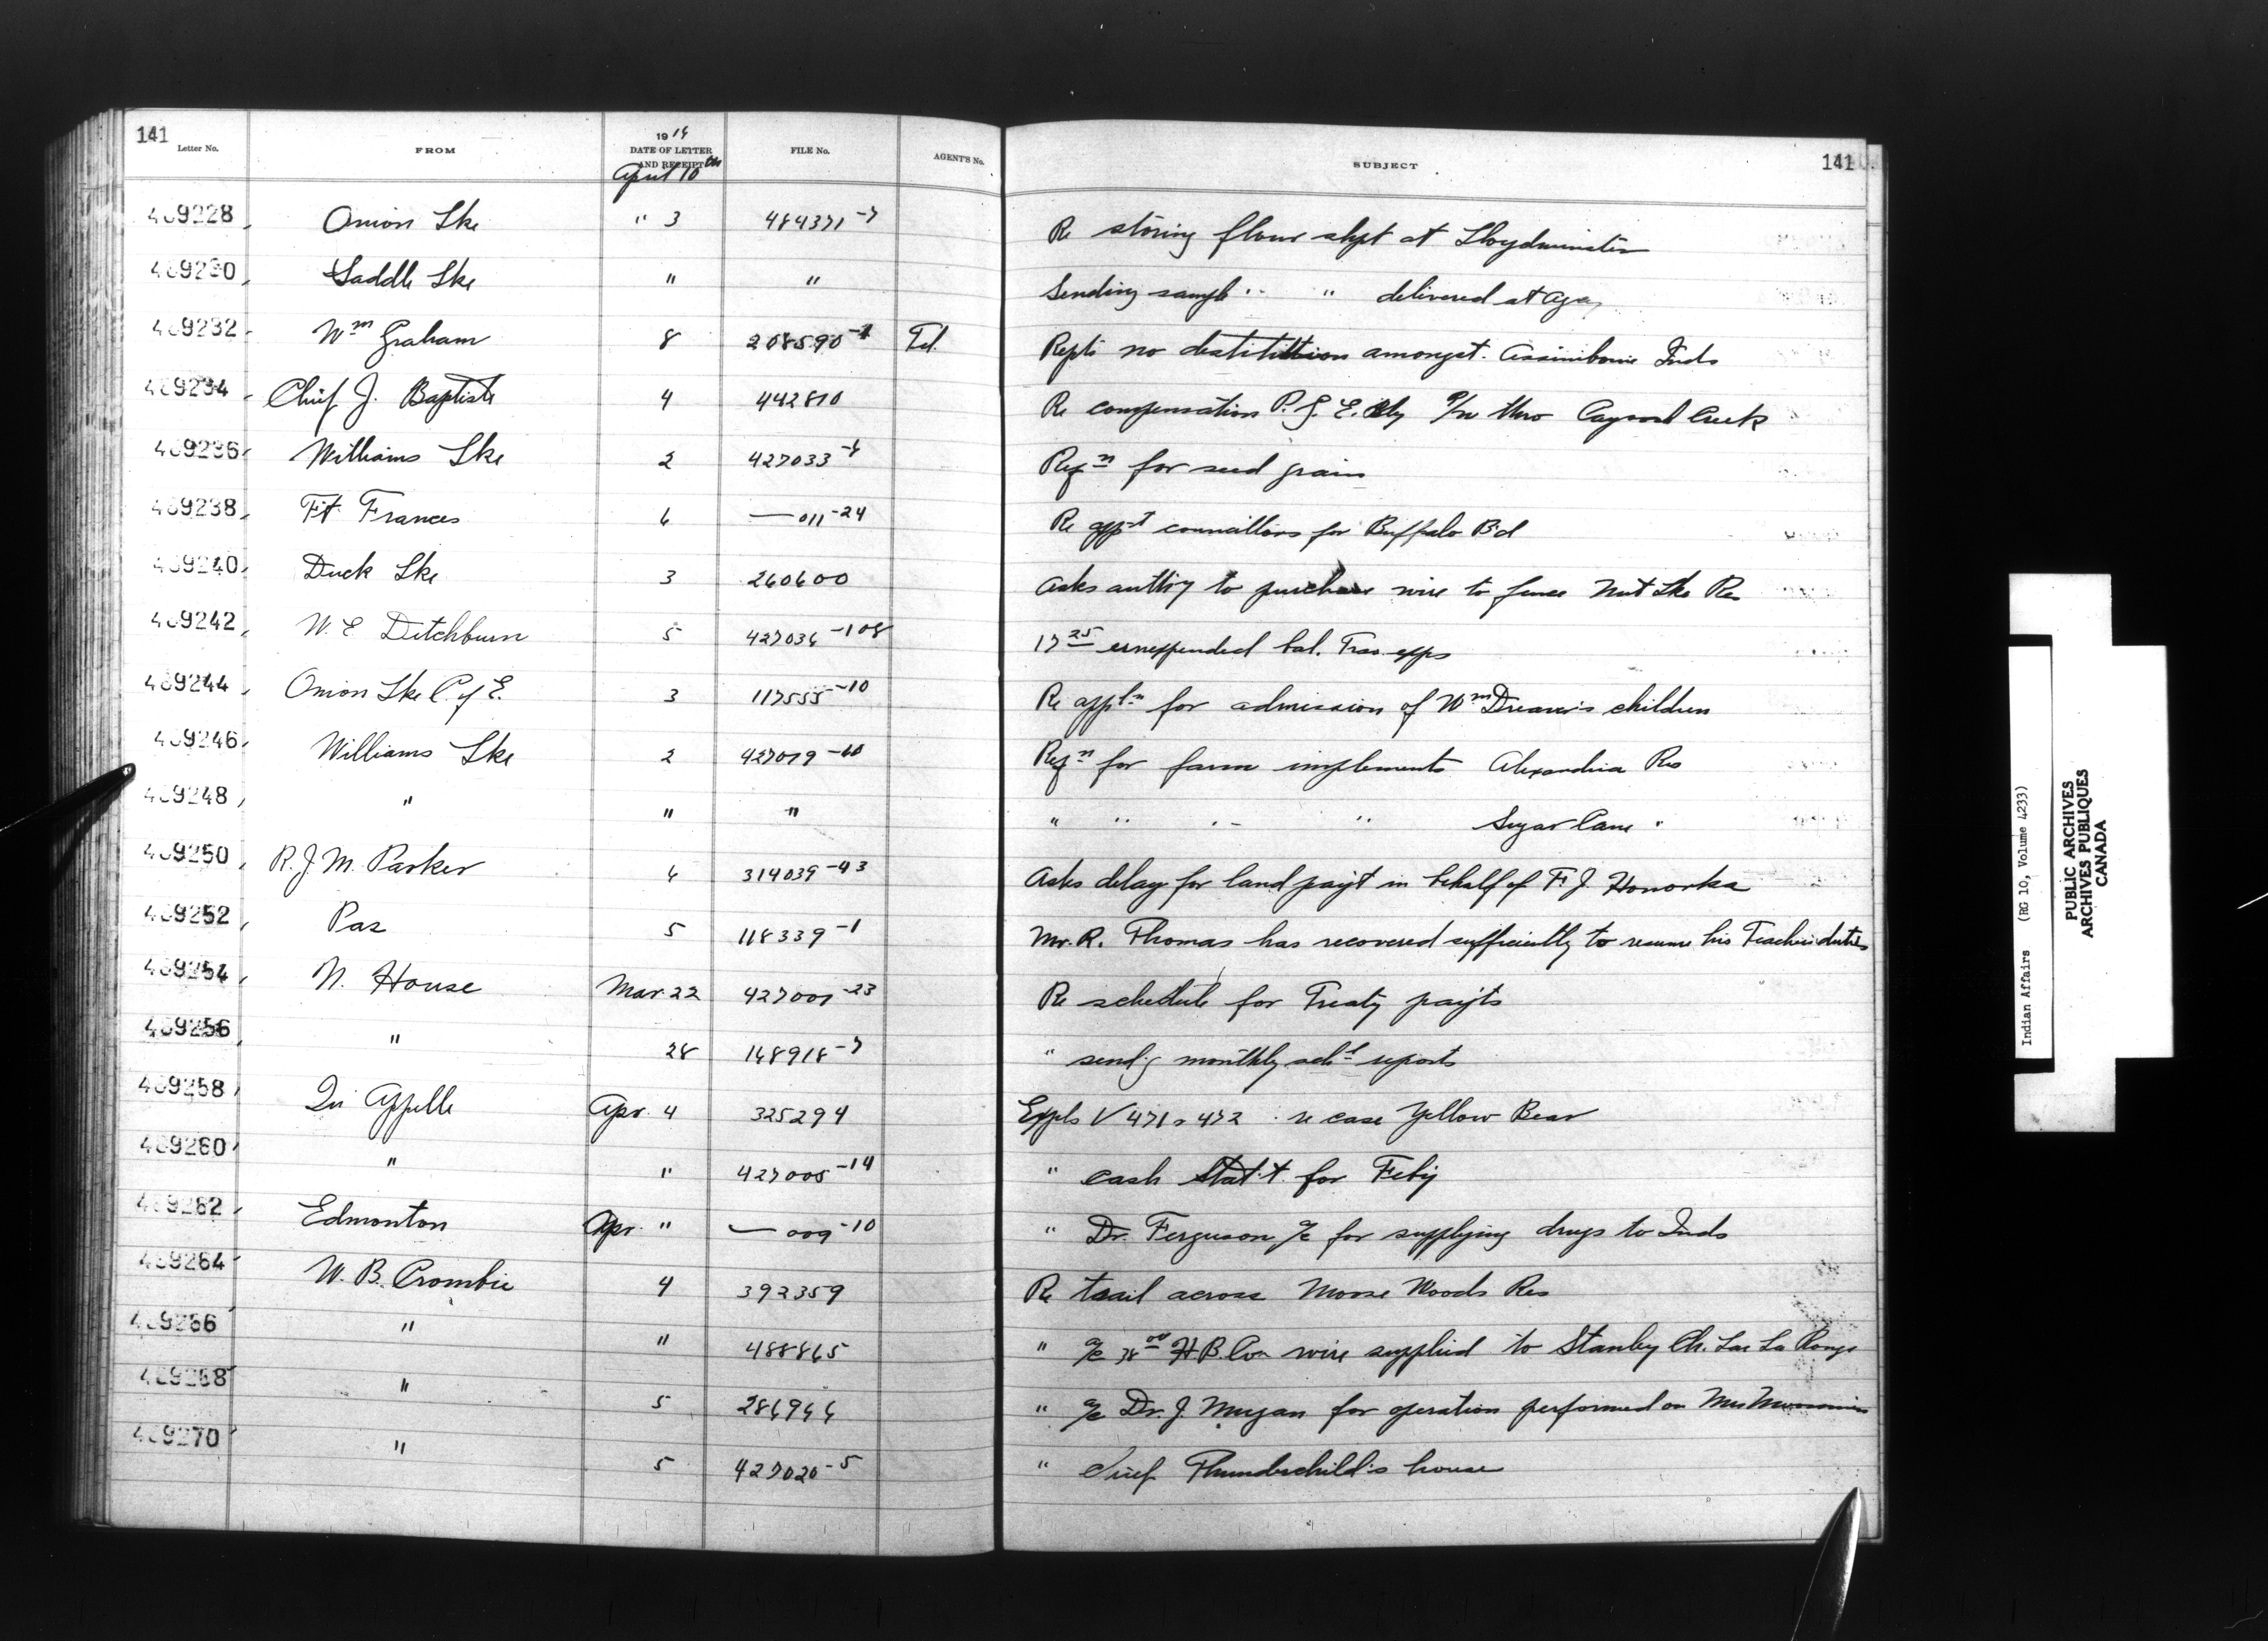 141 141
Letter No. FROM 1914 DATE OF LETTER AND RECEIPT FILE No. AGENT'S No. SUBJECT
April 10th
469228 Onion Lke " 3 484371-7 Re storing flour shpt at Lloydminster
469230 Saddle Lke " " Sending sample " " delivered at Agcy
469232 Wm Graham 8 208590-1 Tel. Repts no destitution amongst Assiniboine Inds
469234 Chief J. Baptiste 4 442810 Re compensation P.G.E. Rly r/w thro Cayoosh Creek
469236 Williams Lke 2 427033-6 Reqn for seed grain
469238 Ft Frances 6 — 011-24 Re appt councillors for Buffalo Bd
469240 Duck Lke 3 260600 Asks authy to purchase wire to fence Nut Lke Res
469242 W. E Ditchburn 5 427036-108 17 25 unexpended bal. Trav. exps
469244 Onion Lke C of E. 3 117555-10 Re appln for admission of Wm Dreaver's children
469246 Williams Lke 2 427019-60 Reqn for farm implements Alexandria Res
469248 " " " " " " " Sugar Cane "
469250 R.J.M. Parker 6 314039-43 Asks delay for land payt in behalf of F. J. Honorka
469252 Pas 5 118339-1 Mr. R. Thomas has recovered sufficiently to resume his Teachers duties
469254 N. House Mar 22 427001-23 Re schedule for Treaty payts
469256 " 28 148918-7 " sendg monthly schl reports
469258 Qu Appelle Apr. 4 325294 Expls V 471 & 472 re case Yellow Bear
469260 " " 427005-14 " cash Stat't for Feby
469262 Edmonton Apr. " — 009-10 " Dr. Ferguson a/c for supplying drugs to Inds
469264 W. B. Crombie 4 392359 Re trail across Moose Woods Res
469266 " " 488865 " a/c 38 00 H B. Co wire supplied to Stanley Ch. Lac La Ronge
469268 " 5 286944 " a/c Dr. J. for operation performed on Mrs
469270 " 5 427020-5 " Chief Thunderchild's house
Indian Affairs (RG 10, Volume 4233)
PUBLIC ARCHIVES
ARCHIVES PUBLIQUES
CANADA